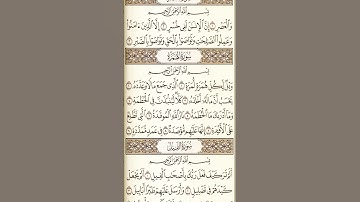 بِسْمِ اللَّهِ الرَّحْمَٰنِ الرَّحِيمِ
وَالْعَصْرِ ١ إِنَّ الْإِنسَانَ لَفِي خُسْرٍ ٢ إِلَّا الَّذِينَ ءَامَنُوا
وَعَمِلُوا الصَّالِحَاتِ وَتَوَاصَوْا بِالْحَقِّ وَتَوَاصَوْا بِالصَّبْرِ ٣
سُورَةُ الْهُمَزَةِ
بِسْمِ اللَّهِ الرَّحْمَٰنِ الرَّحِيمِ
وَيْلٌ لِّكُلِّ هُمَزَةٍ لُّمَزَةٍ ١ الَّذِي جَمَعَ مَالًا وَعَدَّدَهُ ٢
يَحْسَبُ أَنَّ مَالَهُ أَخْلَدَهُ ٣ كَلَّا لَيُنبَذَنَّ فِي الْحُطَمَةِ ٤
وَمَا أَدْرَاكَ مَا الْحُطَمَةُ ٥ نَارُ اللَّهِ الْمُوقَدَةُ ٦ الَّتِي تَطَّلِعُ
عَلَى الْأَفْئِدَةِ ٧ إِنَّهَا عَلَيْهِم مُّؤْصَدَةٌ ٨ فِي عَمَدٍ مُّمَدَّدَةٍ ٩
سُورَةُ الْفِيلِ
بِسْمِ اللَّهِ الرَّحْمَٰنِ الرَّحِيمِ
أَلَمْ تَرَ كَيْفَ فَعَلَ رَبُّكَ بِأَصْحَابِ الْفِيلِ ١ أَلَمْ يَجْعَلْ
كَيْدَهُمْ فِي تَضْلِيلٍ ٢ وَأَرْسَلَ عَلَيْهِمْ طَيْرًا أَبَابِيلَ ٣